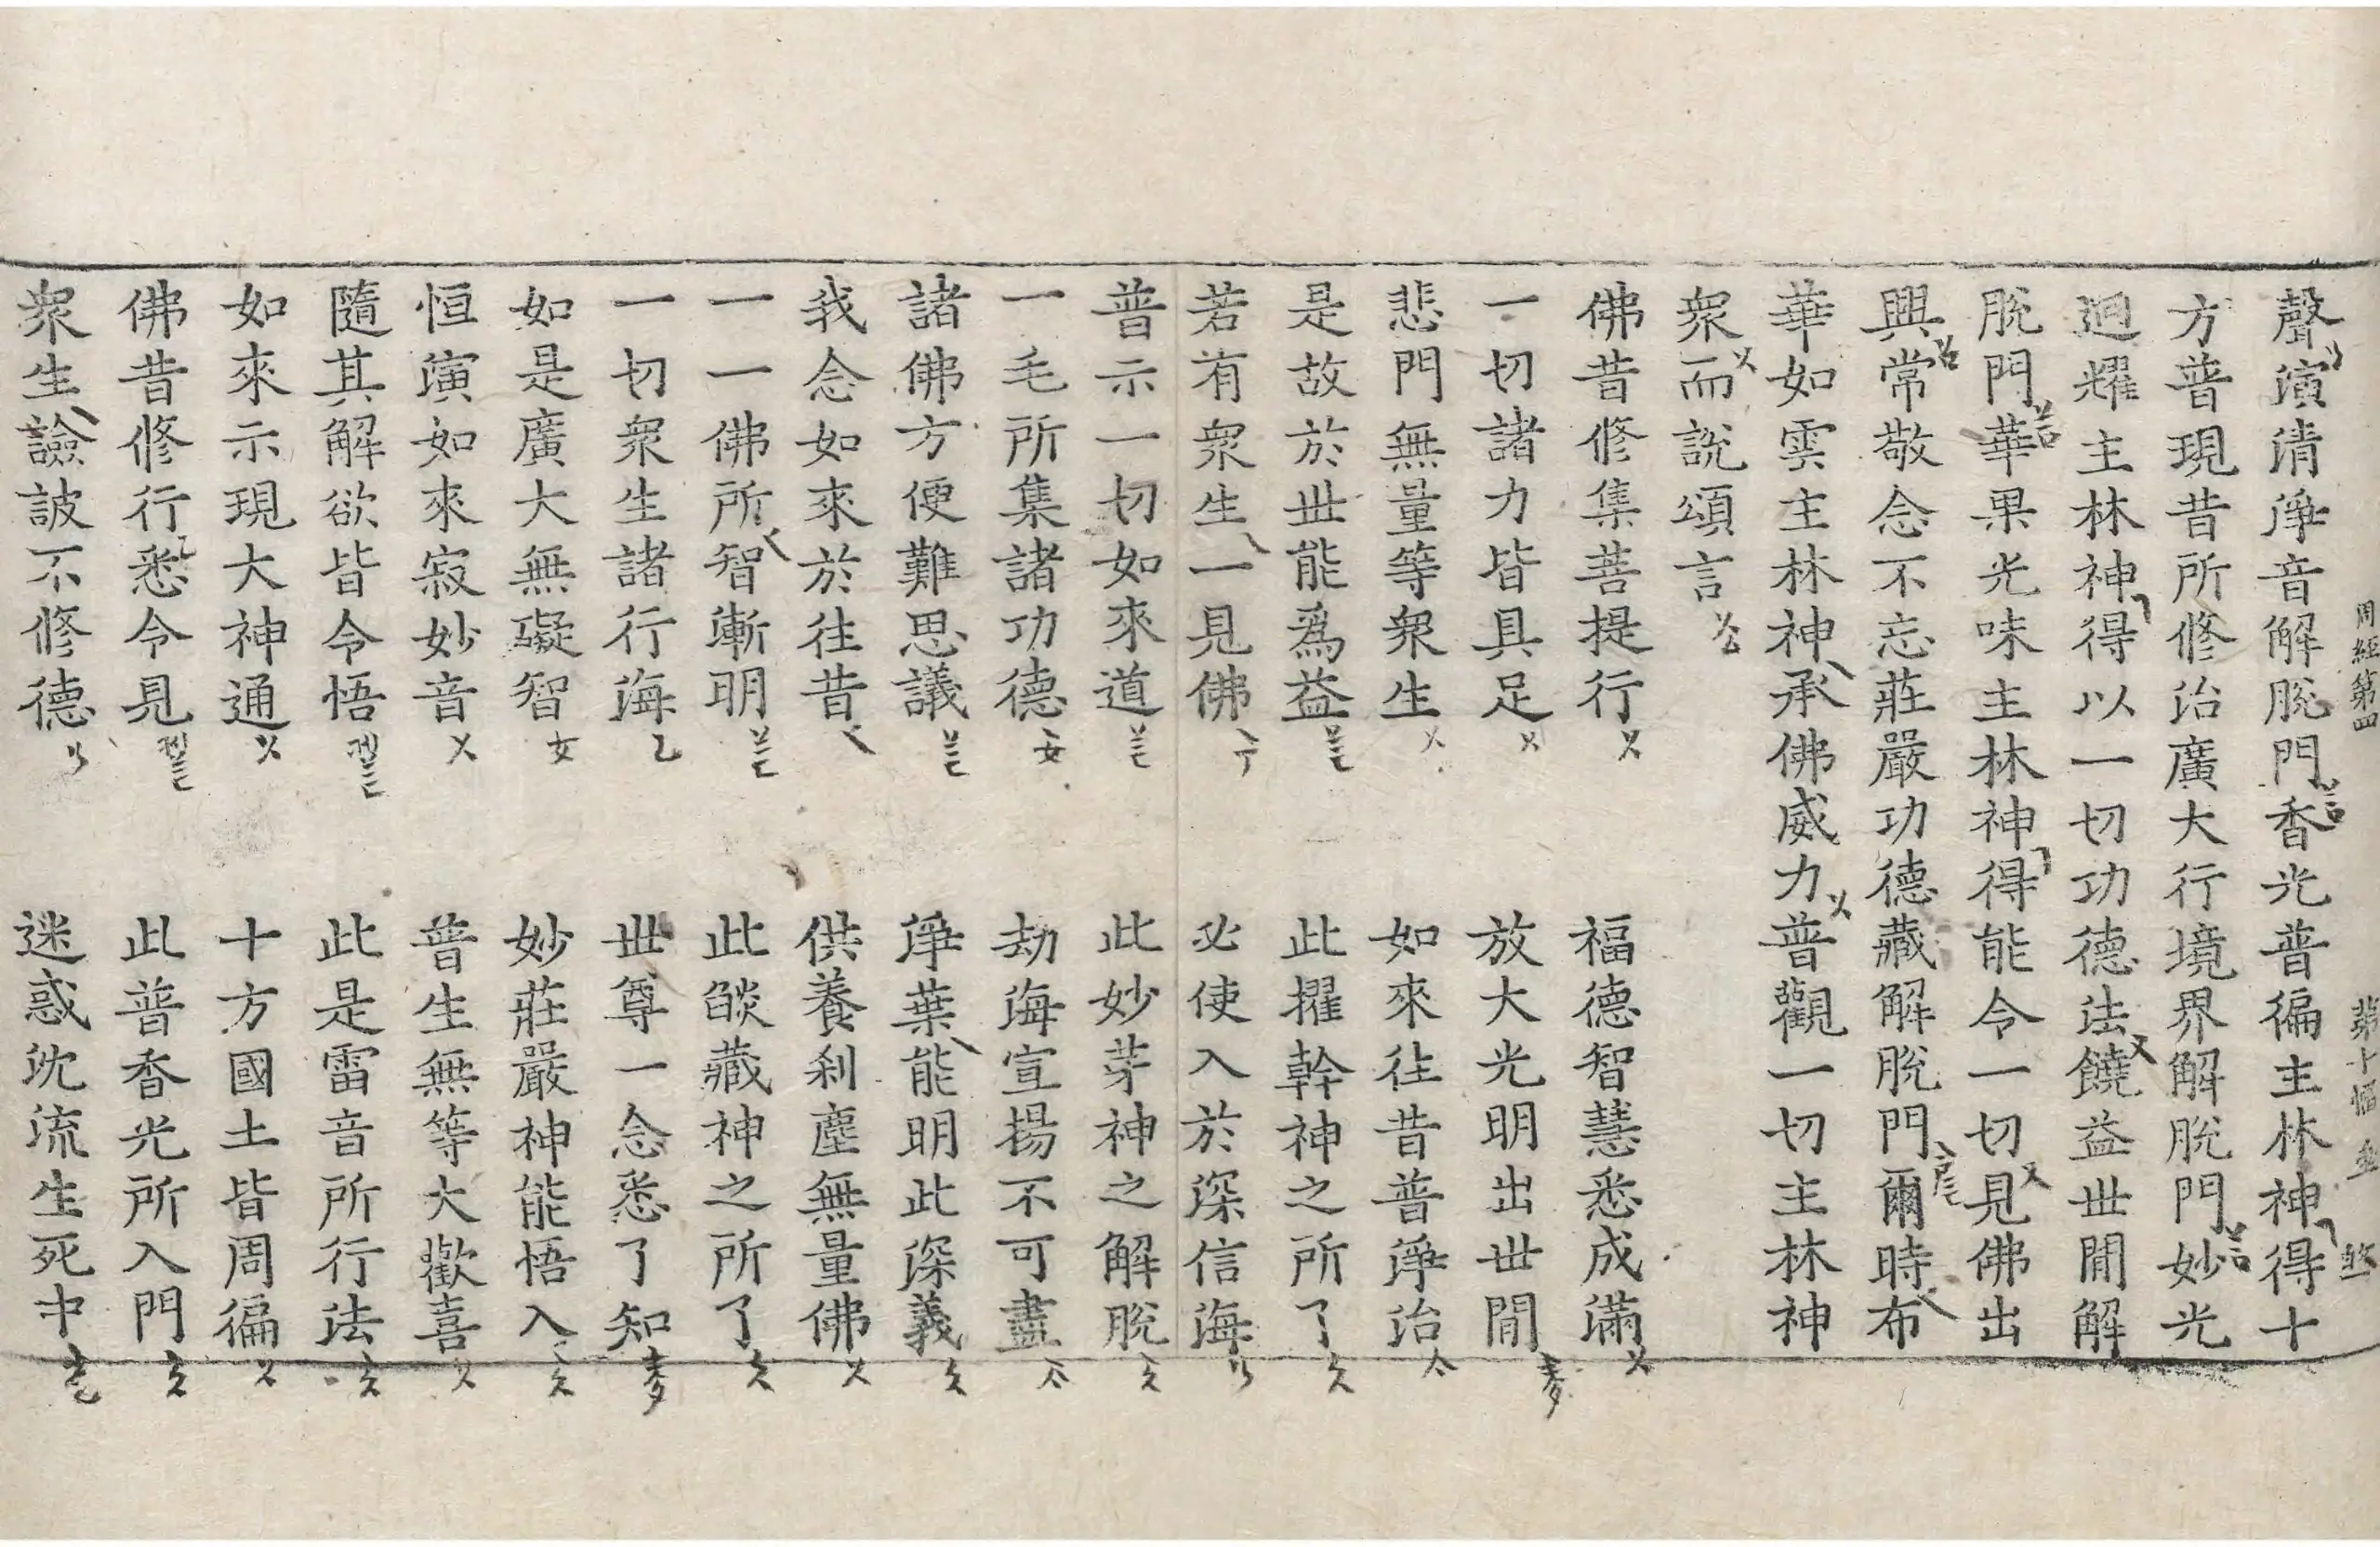 周經第四 第十幅
聲演清淨音解脫門香光普徧主林神得十
方普現昔所修治廣大行境界解脫門妙光
逈耀主林神得以一切功德法饒益世間解
脫門華果光味主林神得能令一切見佛出
興常敬念不忘莊嚴功德藏解脫門爾時布
華如雲主林神承佛威力普觀一切主林神
衆而說頌言
佛昔修集菩提行 福德智慧悉成滿
一切諸力皆具足 放大光明出世間
悲門無量等衆生 如來往昔普淨治
是故於世能爲益 此擢幹神之所了
若有衆生一見佛 必使入於深信海
普示一切如來道 此妙芽神之解脫
一毛所集諸功德 劫海宣揚不可盡
諸佛方便難思議 淨葉能明此深義
我念如來於往昔 供養剎塵無量佛
一一佛所智漸明 此燄藏神之所了
一切衆生諸行海 世尊一念悉了知
如是廣大無礙智 妙莊嚴神能悟入
恒演如來寂妙音 普生無等大歡喜
隨其解欲皆令悟 此是雷音所行法
如來示現大神通 十方國土皆周徧
佛昔修行悉令見 此普香光所入門
衆生譣詖不修德 迷惑沈流生死中